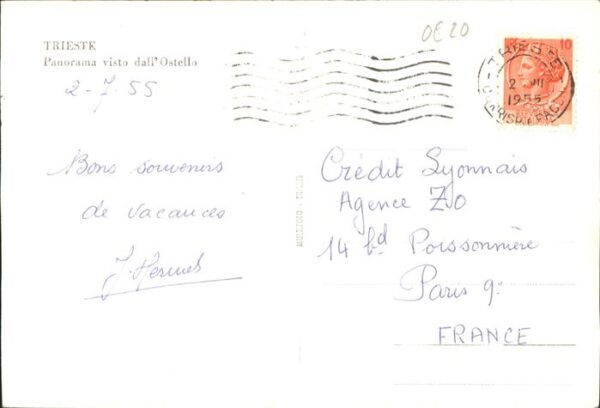 TRIESTE
Panorama visto dall'Ostello
2-7.55
Bons souvenirs
de vacances
J. Hermel
OE20
10
TRIESTE
2 VII
1955
Crédit Lyonnais
Agence ZO
14 bd Poissonnière
Paris 9e
FRANCE